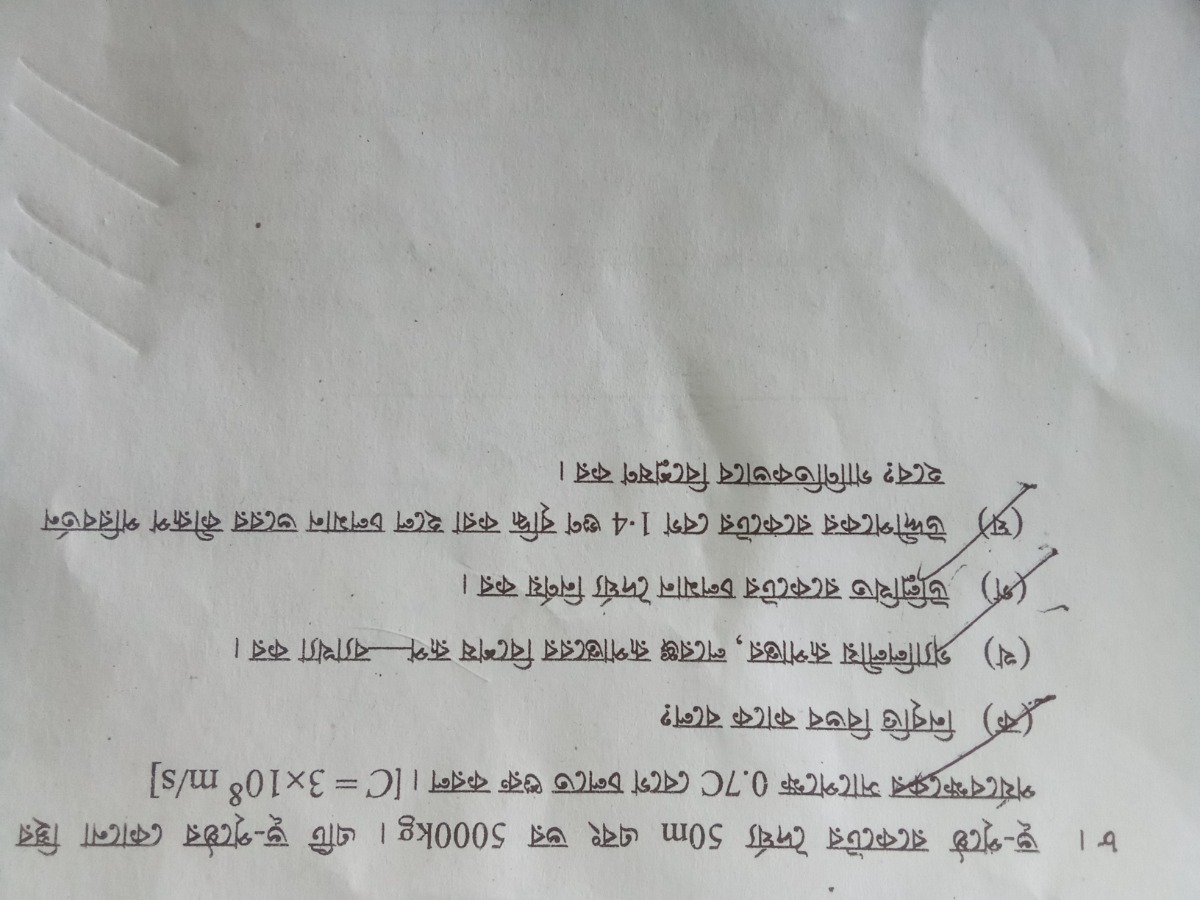 ৮। ভূ-পৃষ্ঠে রকেটের দৈর্ঘ্য 50m এবং ভর 5000kg। এটি ভূ-পৃষ্ঠের কোনো স্থির
পর্যবেক্ষকের সাপেক্ষে 0.7C বেগে চলতে শুরু করল। [C = 3×10⁸ m/s]
(ক) নিবৃত্তি বিভব কাকে বলে?
(খ) গ্যালিলীয় রূপান্তর, লরেঞ্জ রূপান্তরের বিশেষ রূপ—ব্যাখ্যা কর।
(গ) উল্লিখিত রকেটের চলমান দৈর্ঘ্য নির্ণয় কর।
(ঘ) উদ্দীপকের রকেটের বেগ 1·4 গুণ বৃদ্ধি করা হলে চলমান ভরের কীরূপ পরিবর্তন
হবে? গাণিতিকভাবে বিশ্লেষণ কর।